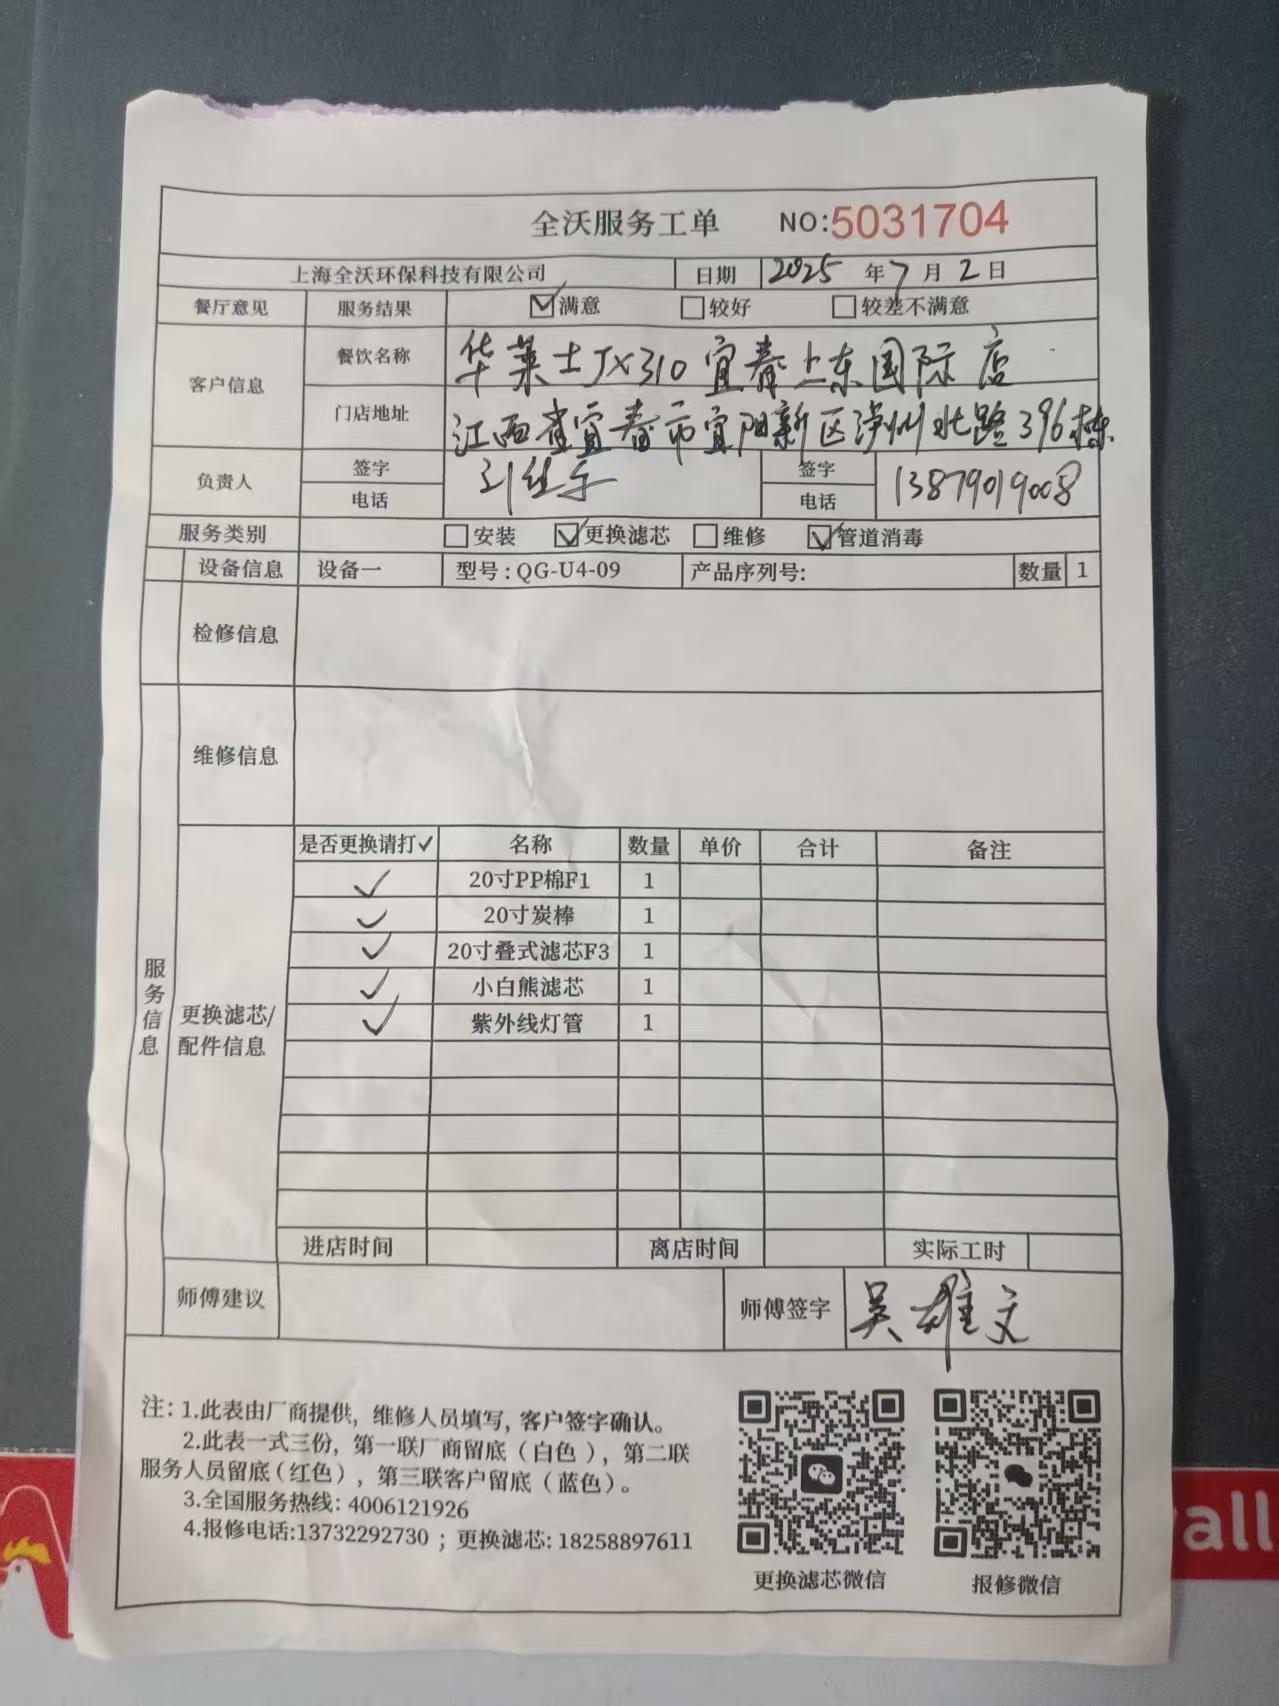 全沃服务工单 NO:5031704
上海全沃环保科技有限公司 日期 2025 年 7 月 2 日
餐厅意见 服务结果 ☑满意 □较好 □较差不满意
客户信息 餐饮名称 华莱士JX310宜春上东国际店
门店地址 江西省宜春市宜阳新区泸州北路396栋
负责人 签字 签字
电话 电话 13879019008
服务类别 □安装 ☑更换滤芯 □维修 ☑管道消毒
设备信息 设备一 型号:QG-U4-09 产品序列号: 数量 1
检修信息
维修信息
服务信息
更换滤芯/配件信息
是否更换请打✓ 名称 数量 单价 合计 备注
✓ 20寸PP棉F1 1
✓ 20寸炭棒 1
✓ 20寸叠式滤芯F3 1
✓ 小白熊滤芯 1
✓ 紫外线灯管 1
进店时间 离店时间 实际工时
师傅建议 师傅签字 吴雄文
注:1.此表由厂商提供,维修人员填写,客户签字确认。
2.此表一式三份,第一联厂商留底(白色),第二联
服务人员留底(红色),第三联客户留底(蓝色)。
3.全国服务热线:4006121926
4.报修电话:13732292730;更换滤芯:18258897611
更换滤芯微信 报修微信
all